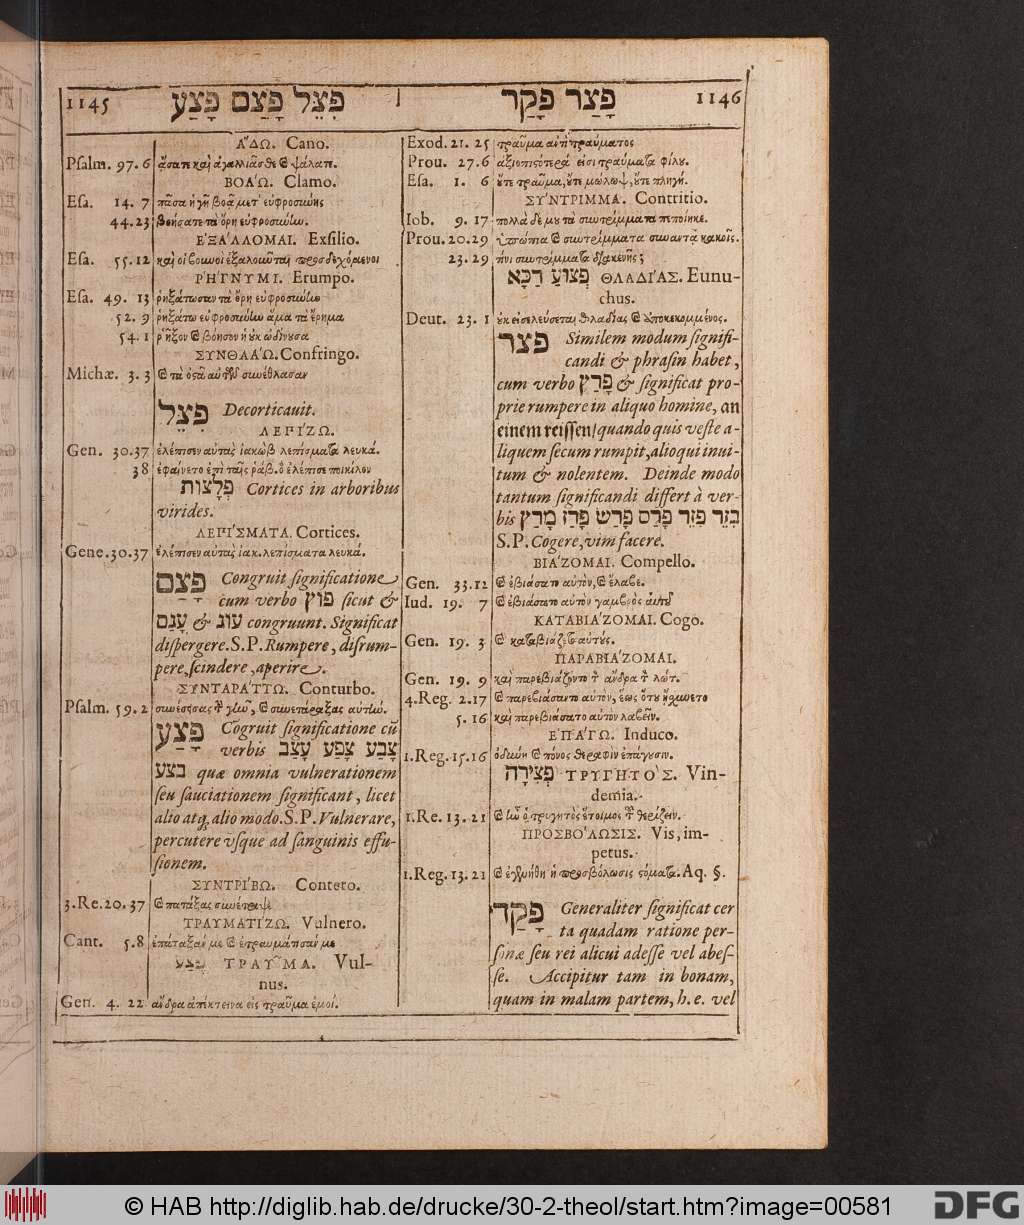 1145 פִּצֵּל פָּצַם פָּצַע
פָּצַר פָּקַד 1146
ΑΔΩ. Cano.
Psalm. 97. 6 ᾄσατε καὶ ἀγαλλιᾶσθε καὶ ψάλατε.
ΒΟΑΏ. Clamo.
Esa. 14. 7 πᾶσα ἡ γῆ βοᾷ μετ' εὐφροσύνης
44.23 βοήσατε τὰ ὄρη εὐφροσύνην.
ΕΞΑΛΛΟΜΑΙ. Exsilio.
Esa. 55.12 καὶ οἱ βουνοὶ ἐξαλοῦνται προσδεχόμενοι
ΡΗΓΝΥΜΙ. Erumpo.
Esa. 49. 13 ῥηξάτωσαν τὰ ὄρη εὐφροσύνην
52. 9 ῥηξάτω εὐφροσύνην ἅμα τὰ ἔρημα
54. 1 ῥῆξον καὶ βόησον ἡ οὐκ ὠδίνουσα
ΣΥΝΘΛΑΏ. Confringo.
Michæ. 3. 3 καὶ τὰ ὀστᾶ αὐτῶν συνέθλασαν
פִּצֵּל Decorticauit.
ΛΕΠΙΖΩ.
Gen. 30.37 ἐλέπισεν αὐτὰς ἰακὼβ λεπίσματα λευκά.
38 ἐφαίνετο ἐπὶ ταῖς ῥάβ. ὃ ἐλέπισε ποικίλον
פְּלָצוֹת Cortices in arboribus
virides.
ΛΕΠΙΣΜΑΤΑ. Cortices.
Gene.30.37 ἐλέπισεν αὐτὰς ἰακ. λεπίσματα λευκά.
פָּצַם Congruit significatione
cum verbo פוץ sicut &
עָנַם & עוג congruunt. Significat
dispergere. S.P. Rumpere, disrum-
pere, scindere, aperire.
ΣΥΝΤΑΡΑΤΤΩ. Conturbo.
Psalm. 59. 2 συνέσεισας τὴν γῆν, καὶ συνετάραξας αὐτήν.
פָּצַע Cōgruit significatione cū
verbis צָבַע צָפַע עָצַב
בצע quæ omnia vulnerationem
seu sauciationem significant, licet
alio atq; alio modo. S.P. Vulnerare,
percutere vsque ad sanguinis effu-
sionem.
ΣΥΝΤΡΙΒΩ. Contero.
3.Re.20.37 καὶ πατάξας συνέτριψε
ΤΡΑΥΜΑΤΙΖΩ. Vulnero.
Cant. 5.8 ἐπάταξάν με καὶ ἐτραυμάτισάν με
פֶּצַע ΤΡΑΥΜΑ. Vul-
nus.
Gen. 4. 22 ἄνδρα ἀπέκτεινα εἰς τραῦμα ἐμοί.
Exod. 21. 25 τραῦμα ἀντὶ τραύματος
Prou. 27.6 ἀξιοπιστότερά εἰσι τραύματα φίλου.
Esa. 1. 6 οὔτε τραῦμα, οὔτε μώλωψ, οὔτε πληγή.
ΣΥΝΤΡΙΜΜΑ. Contritio.
Iob. 9. 17 πολλὰ δέ μου τὰ συντρίμματα πεποίηκε.
Prou. 20.29 ὑπώπια καὶ συντρίμματα συναντᾷ κακοῖς.
23. 29 τίνι συντρίμματα διακενῆς;
פְּצוּעַ דַכָּא ΘΛΑΔΙΑΣ. Eunu-
chus.
Deut. 23. 1 οὐκ εἰσελεύσεται θλαδίας καὶ ἀποκεκομμένος.
פצר Similem modum signifi-
candi & phrasin habet,
cum verbo פָּרַץ & significat pro-
prie rumpere in aliquo homine, an
einem reissen/ quando quis veste a-
liquem secum rumpit, alioqui inui-
tum & nolentem. Deinde modo
tantum significandi differt à ver-
bis בִּזֵּר פִּזֵּר פָּרַס פָּרַשׂ פָּרַז מָרַץ
S.P. Cogere, vim facere.
ΒΙΑΖΟΜΑΙ. Compello.
Gen. 33.12 καὶ ἐβιάσατο αὐτὸν, καὶ ἔλαβε.
Iud. 19. 7 καὶ ἐβιάσατο αὐτὸν γαμβρὸς αὐτοῦ
ΚΑΤΑΒΙΑΖΟΜΑΙ. Cogo.
Gen. 19. 3 καὶ καταβιάζετο αὐτούς.
ΠΑΡΑΒΙΑΖΟΜΑΙ.
Gen. 19. 9 καὶ παρεβιάζοντο τὸν ἄνδρα τὸν λώτ.
4.Reg. 2.17 καὶ παρεβιάσαντο αὐτὸν, ἕως ὅτου ᾐσχύνετο
5. 16 καὶ παρεβιάσατο αὐτὸν λαβεῖν.
ΕΠΑΓΩ. Induco.
1.Reg.15.16 ὀδύνην καὶ πόνους θεραφὶν ἐπάγουσιν.
פְּצִירָה ΤΡΥΓΗΤΟΣ. Vin-
demia.
1.Re. 13. 21 καὶ ἦν ὁ τρυγητὸς ἕτοιμος τοῦ θερίζειν.
ΠΡΟΣΒΟΛΩΣΙΣ. Vis, im-
petus.
1.Reg. 13. 21 καὶ ἐγενήθη ἡ προσβόλωσις στόματα. Aq. §.
פָּקַד Generaliter significat cer
ta quadam ratione per-
sonæ seu rei alicui adesse vel abes-
se. Accipitur tam in bonam,
quam in malam partem, h.e. vel
© HAB http://diglib.hab.de/drucke/30-2-theol/start.htm?image=00581
DFG